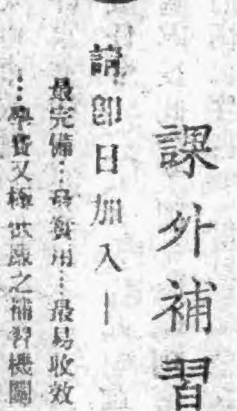 課外補習
請即日加入—
最完備…最實用…最易收效
…學費又極低廉之補習機關